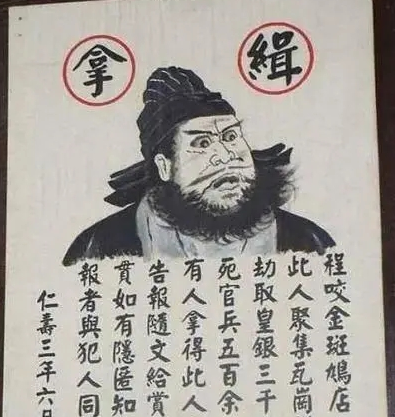 緝拿
程咬金斑鳩店
此人聚集瓦崗
劫取皇銀三千
死官兵五百余
有人拿得此人
告報隨文給賞
貫如有隱匿知
報者與犯人同
仁壽三年六